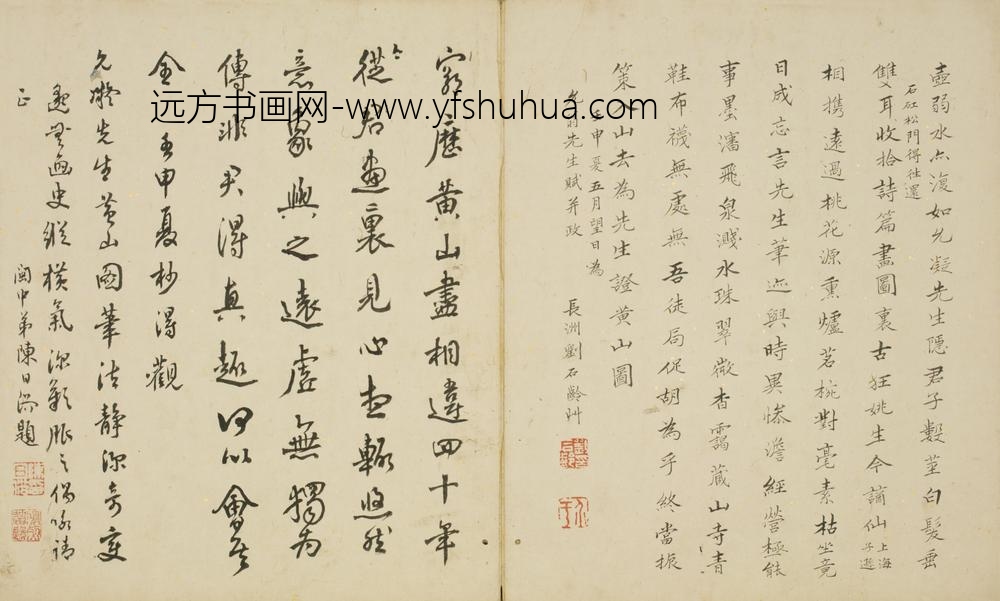 壺弱水亦復如允凝先生隱君子數莖白髮垂
石矼松門得往還
雙耳收拾詩篇畫圖裏古狂姚生今謫仙上海
子遊
相携遠過桃花源熏爐茗椀對毫素枯坐竟
日成忘言先生筆迹與時異慘澹經營極能
事墨瀋飛泉濺水珠翠微杳靄藏山寺青
鞋布襪無處無吾徒局促胡為乎終當振
策入山去為先生證黄山圖
壬申夏五月望日為
先生賦并政
長洲劉石齡艸
窮歷黄山盡相違四十年
今從君畫裏見心與輒悠然
意象興之遠虛無獨為
傳非君得真趣何以會
金 壬申夏杪得觀
允凝先生黄山圖筆法靜深奇變
邈畫史縱横氣深歎服之偈咏請
正
閩中弟陳日浴題
远方书画网-www.yfshuhua.com